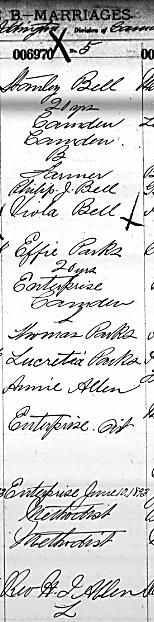 B - MARRIAGES
Division of Cam
006970 No. 5
Stanley Bell
21 yrs
Camden
Camden
B
Farmer
Philip J. Bell
Viola Bell
Effie Parks
20 yrs
Enterprise
Camden
S
Thomas Parks
Lucretia Parks
Annie Allen
Enterprise. Ont
Enterprise June 12, 1923
Methodist
Methodist
Rev H. I Allen
L